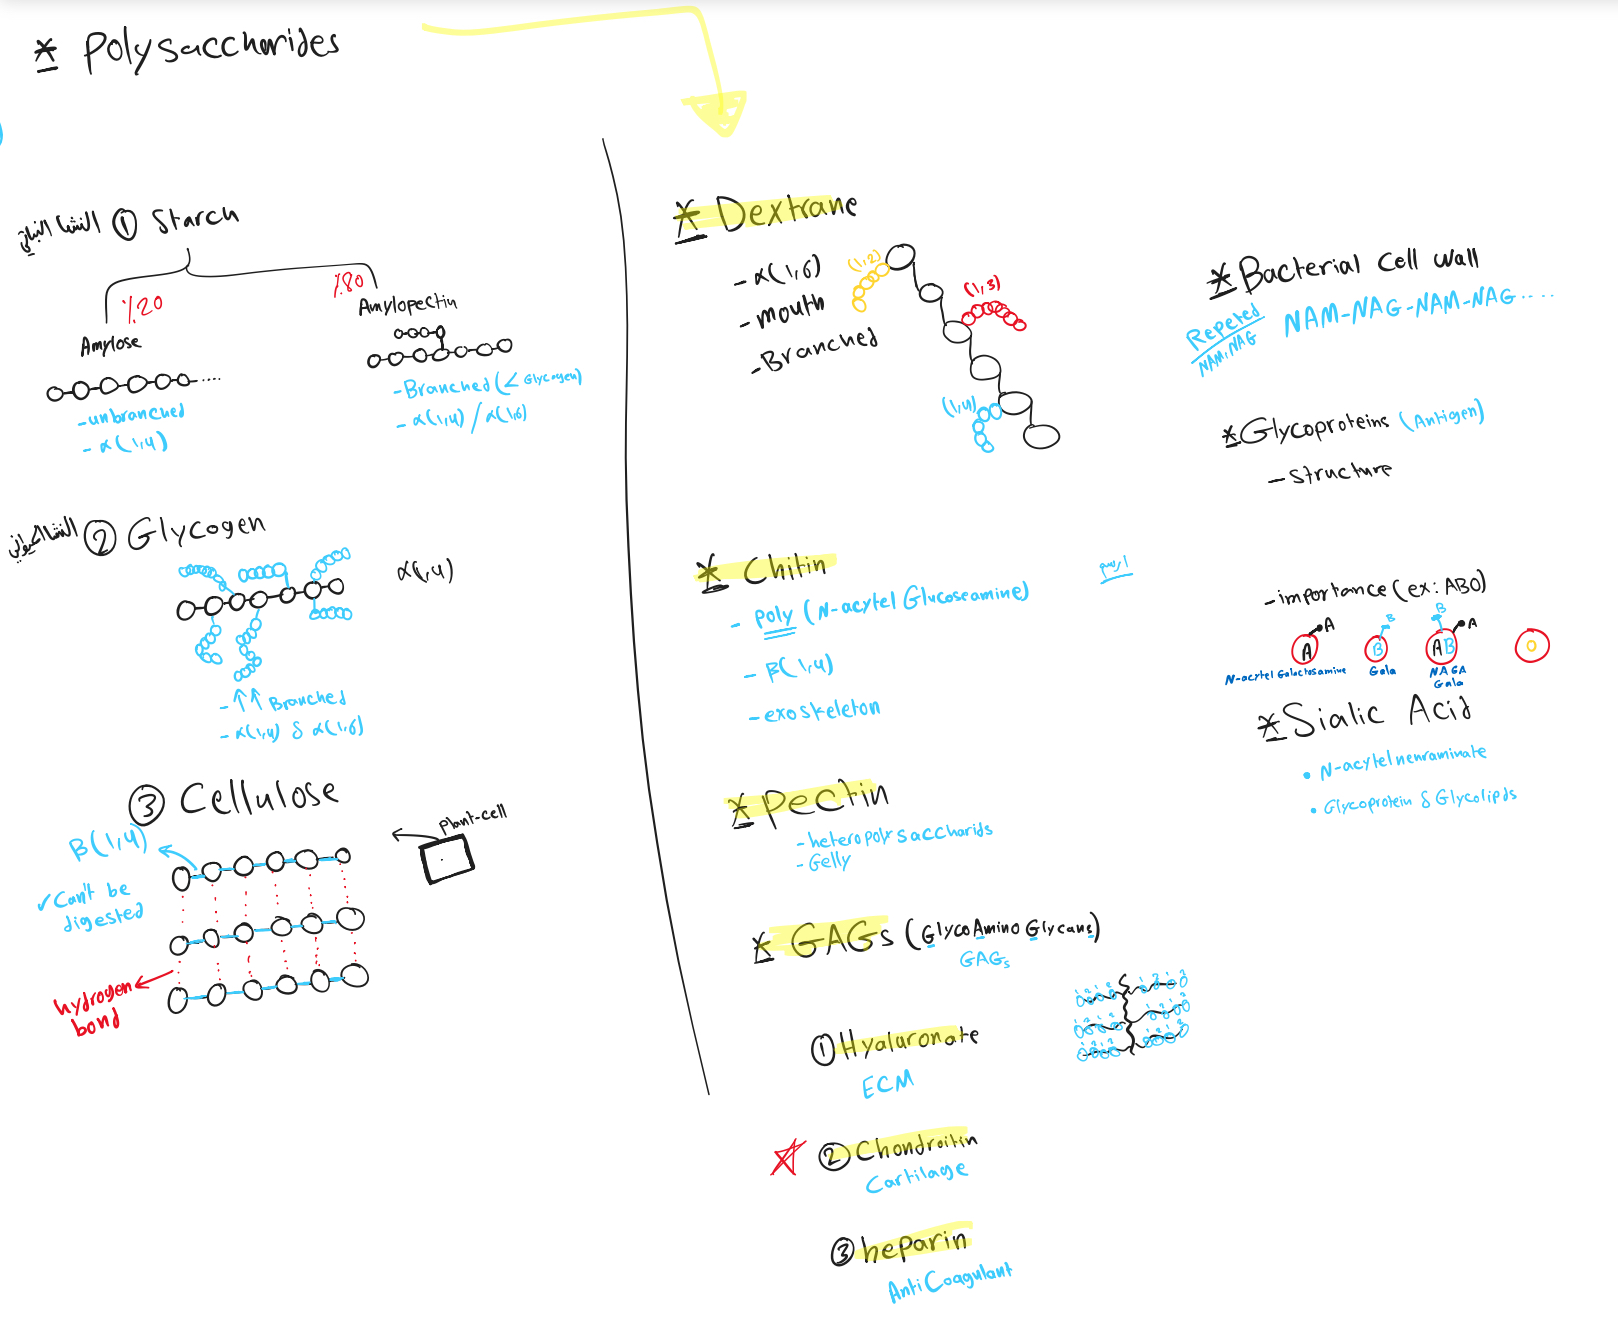 * Polysaccharides
النشا النباتي ① Starch
٪20
٪80
Amylose
Amylopectin
-unbranched
- α(1,4)
-Branched (< Glycogen)
- α(1,4) / α(1,6)
النشا الحيواني ② Glycogen
α(1,4)
- ↑↑ Branched
- α(1,4) & α(1,6)
③ Cellulose
B(1,4)
Plant-cell
✓ Can't be
digested
hydrogen
bond
* Dextrane
- α(1,6)
- mouth
- Branched
(1,2)
(1,3)
(1,4)
* Chitin
- poly (N-acytel Glucoseamine)
- B(1,4)
- exoskeleton
* Pectin
- heteropolysaccharids
- Gelly
* GAGs (GlycoAmino Glycans)
GAGs
① Hyaluronate
ECM
② Chondroitin
Cartilage
③ heparin
AntiCoagulant
* Bacterial Cell wall
Repeted
NAM,NAG
NAM-NAG-NAM-NAG....
* Glycoproteins (Antigen)
- structure
ارسم
- importance (ex: ABO)
A
A
B
B
B
A
AB
O
N-acytel Galactosamine
Gala
NAGA
Gala
* Sialic Acid
• N-acytelnenraminate
• Glycoprotein & Glycolipds